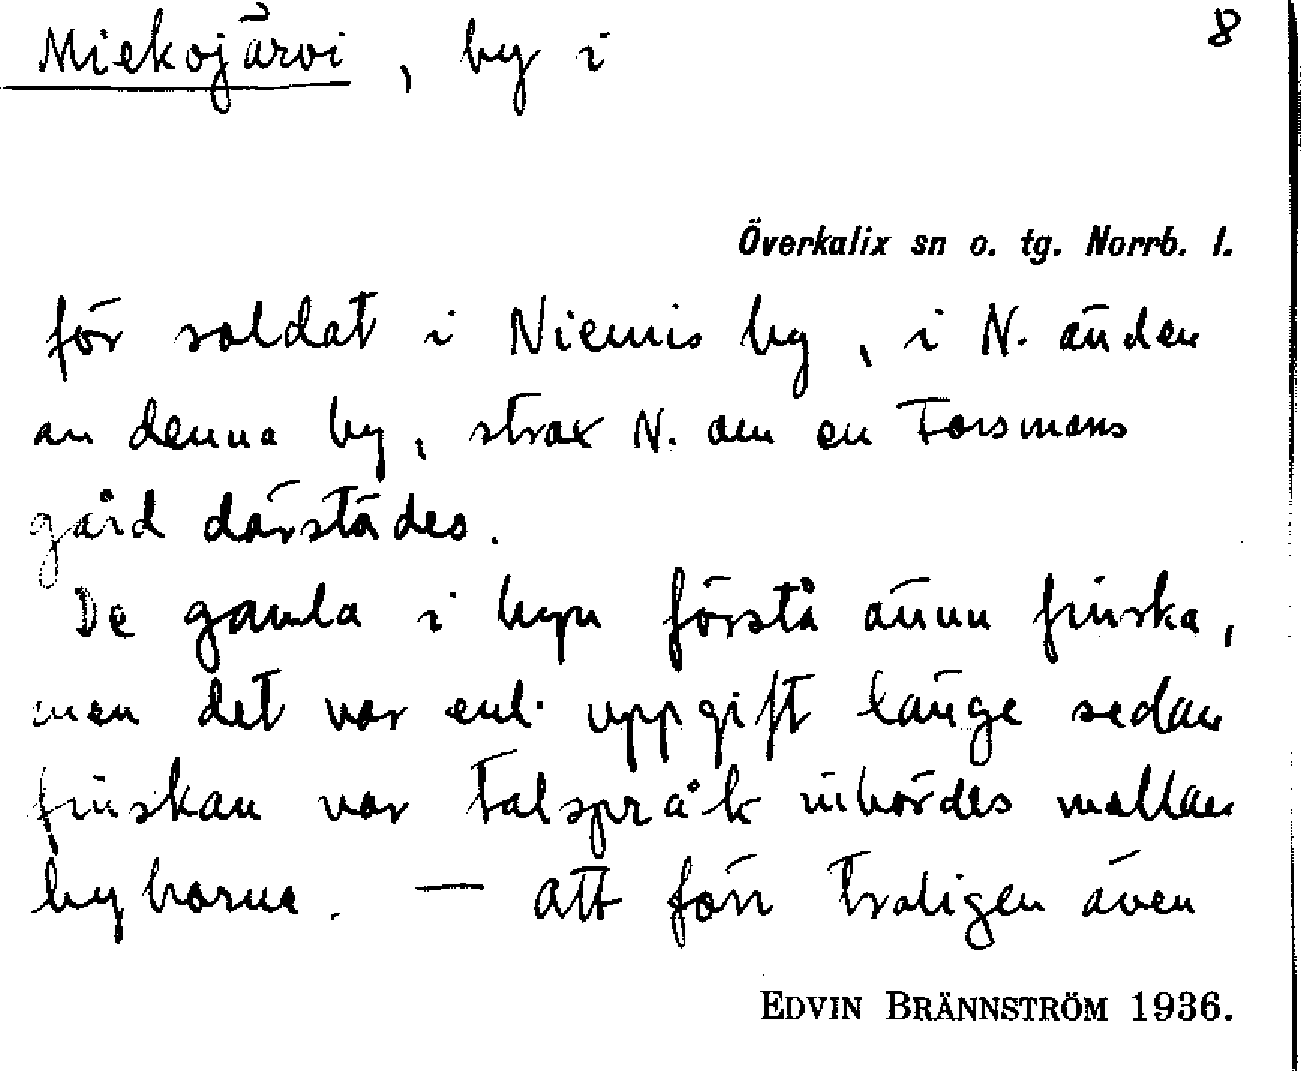 Miekojärvi, by i
8
Överkalix sn o. tg. Norrb. l.
för soldat i Niemis by, i N. änden
av denna by, strax N. om en Forsmans
gård därstädes.
De gamla i byn förstå ännu finska,
men det var enl. uppgift länge sedan
finskan var talspråk inbördes mellan
byborna. — Att förr troligen även
EDVIN BRÄNNSTRÖM 1936.